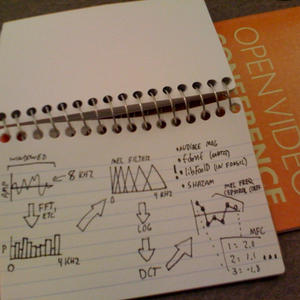 OPEN VIDEO
CONFERENCE
WINDOWED
AMP
8 KHZ
FFT,
ETC
P
0
4 KHZ
MEL FILTER
0
4 KHZ
LOG
DCT
• AUDIBLE MAG
• fdmf
• libFooID (IN FOOSIC)
• SHAZAM
MEL FREQ.
CEPSTRAL COEFF.
MFC
1 = 2.1
2 = 1.1
3 = -1.8